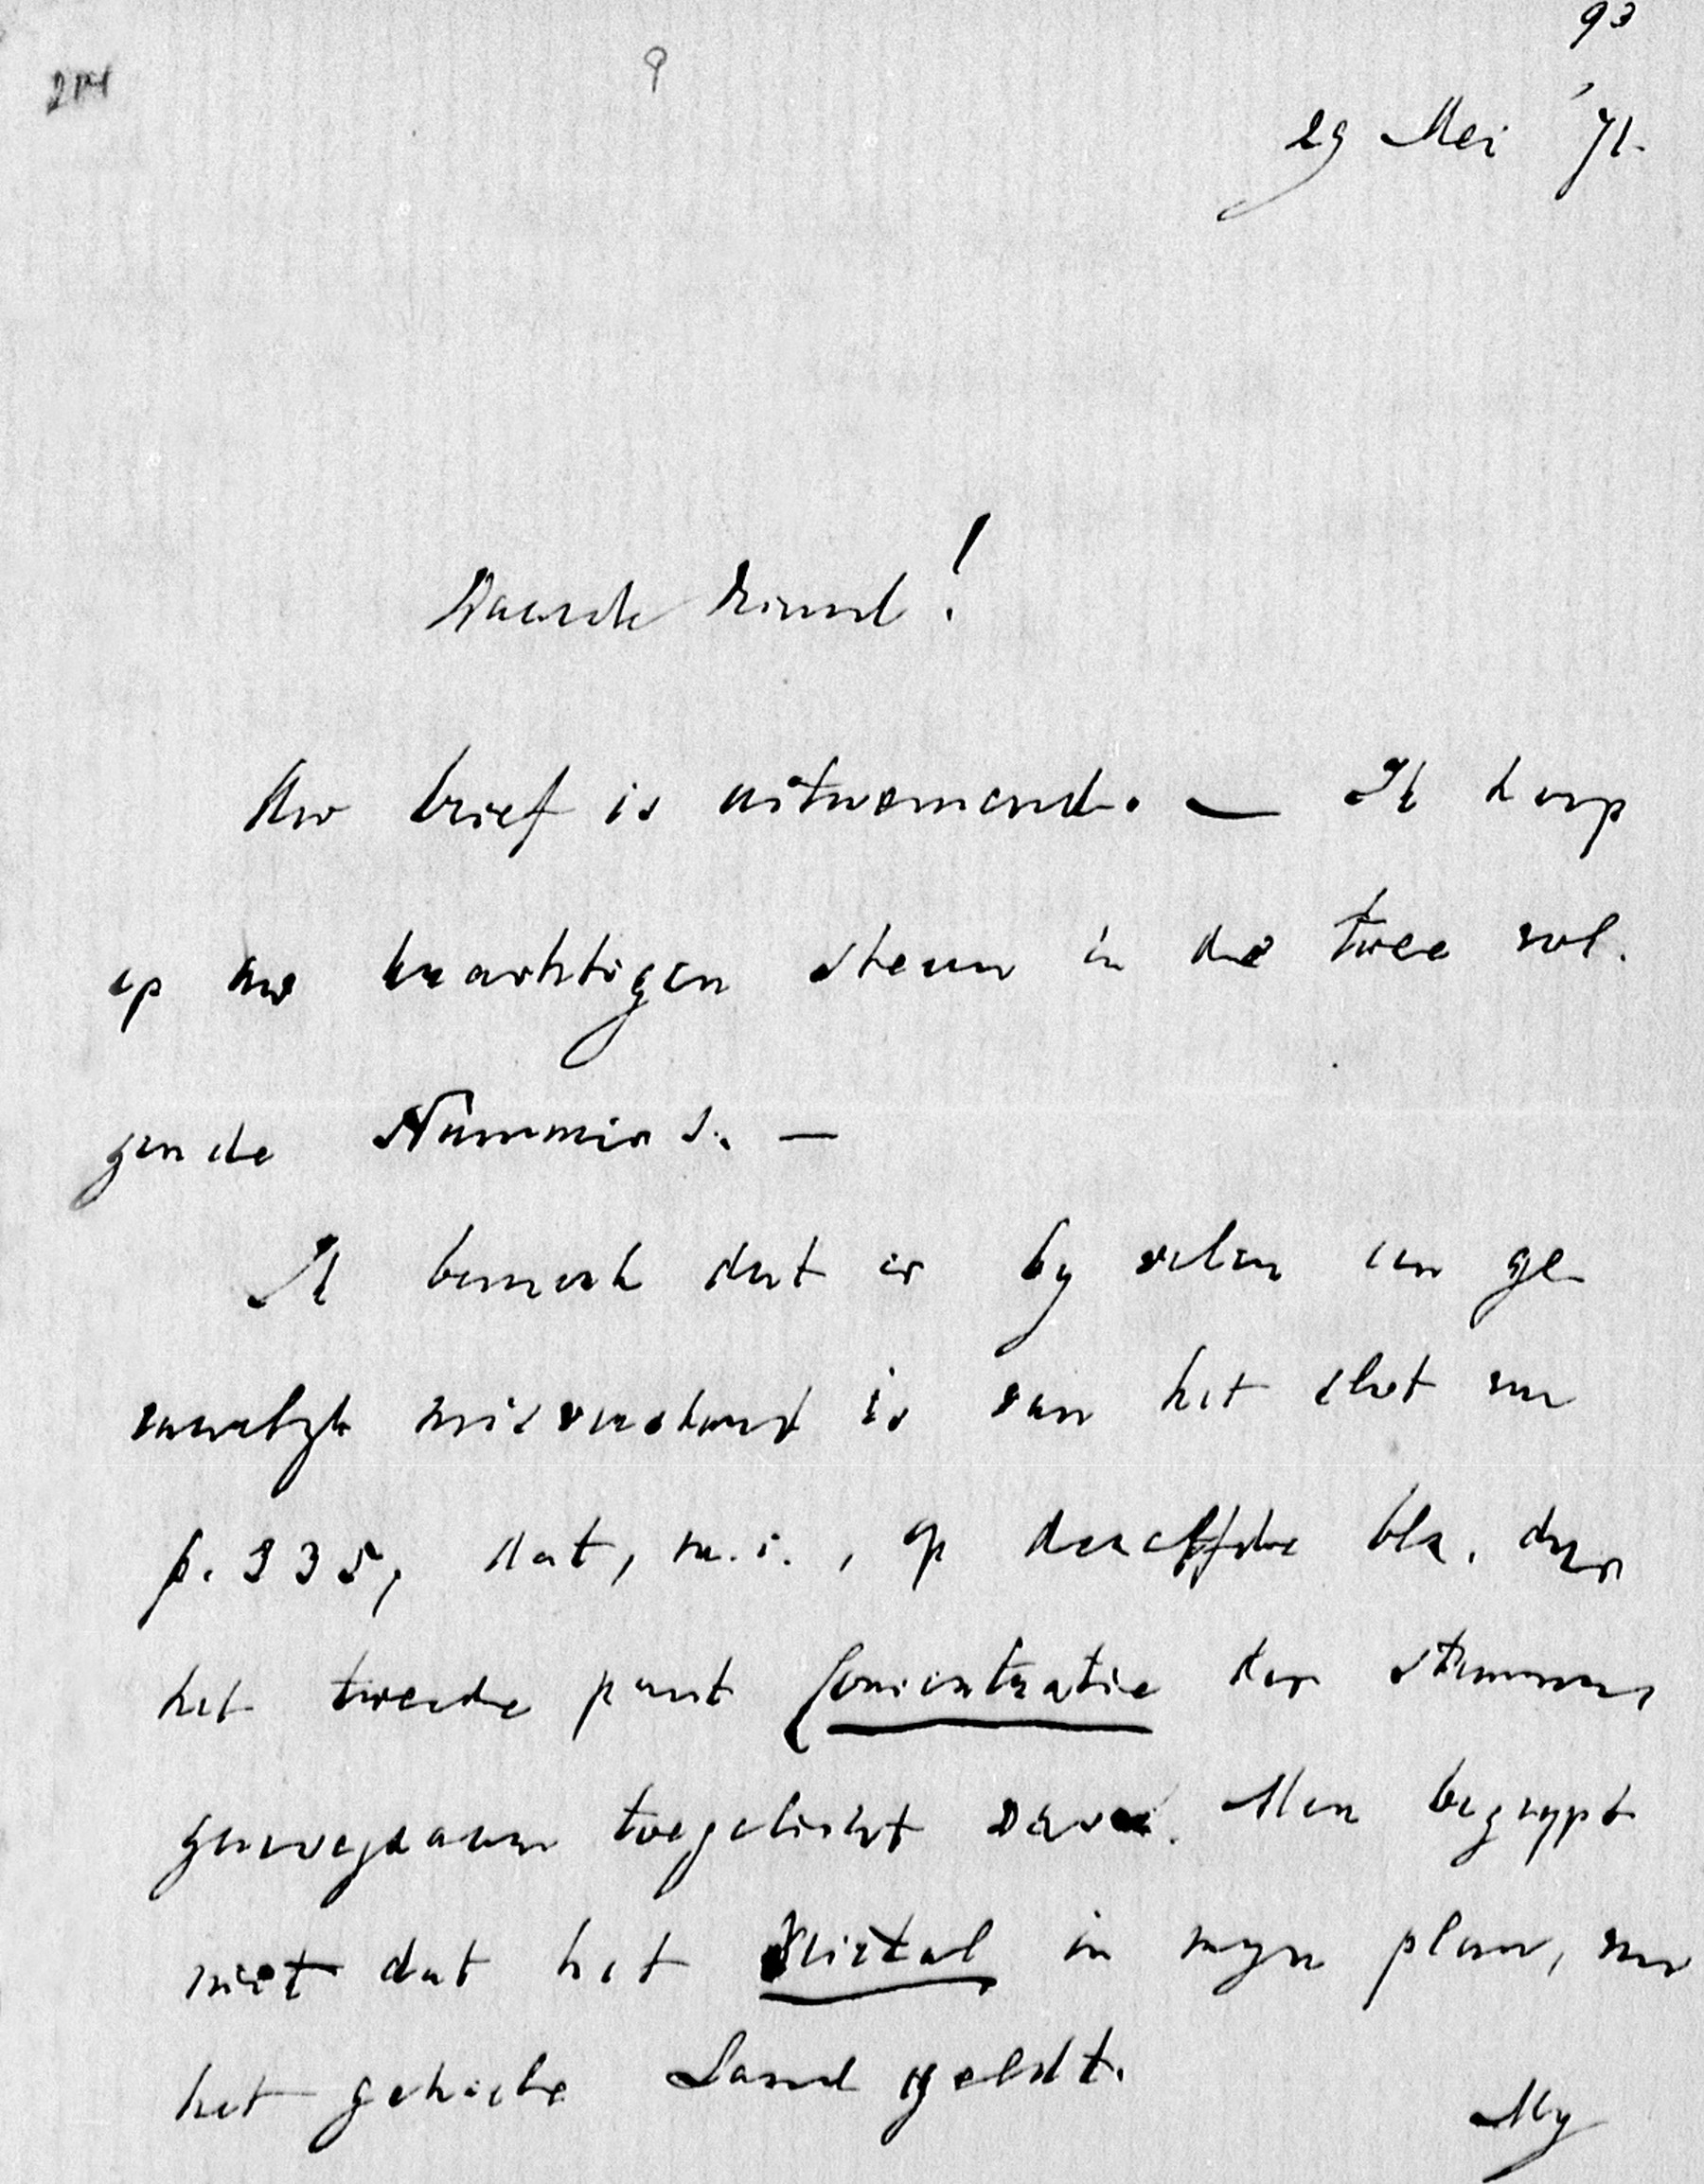 93
29 Mei '71.
Waarde Vriend!
Uw brief is uitnemend. — Ik hoop
op uw krachtigen steun in de twee vol.
gende Nummers. —
Ik bemerk dat er by velen een ge
vaarlyk misverstand is van het slot van
p. 335, dat, m.i., op dezelfde blz. door
het tweede punt Concentratie der stemmen
genoegzaam toegelicht werd. Men begrypt
niet dat het Kiestal in myn plan, voor
het geheele Land geldt.
My